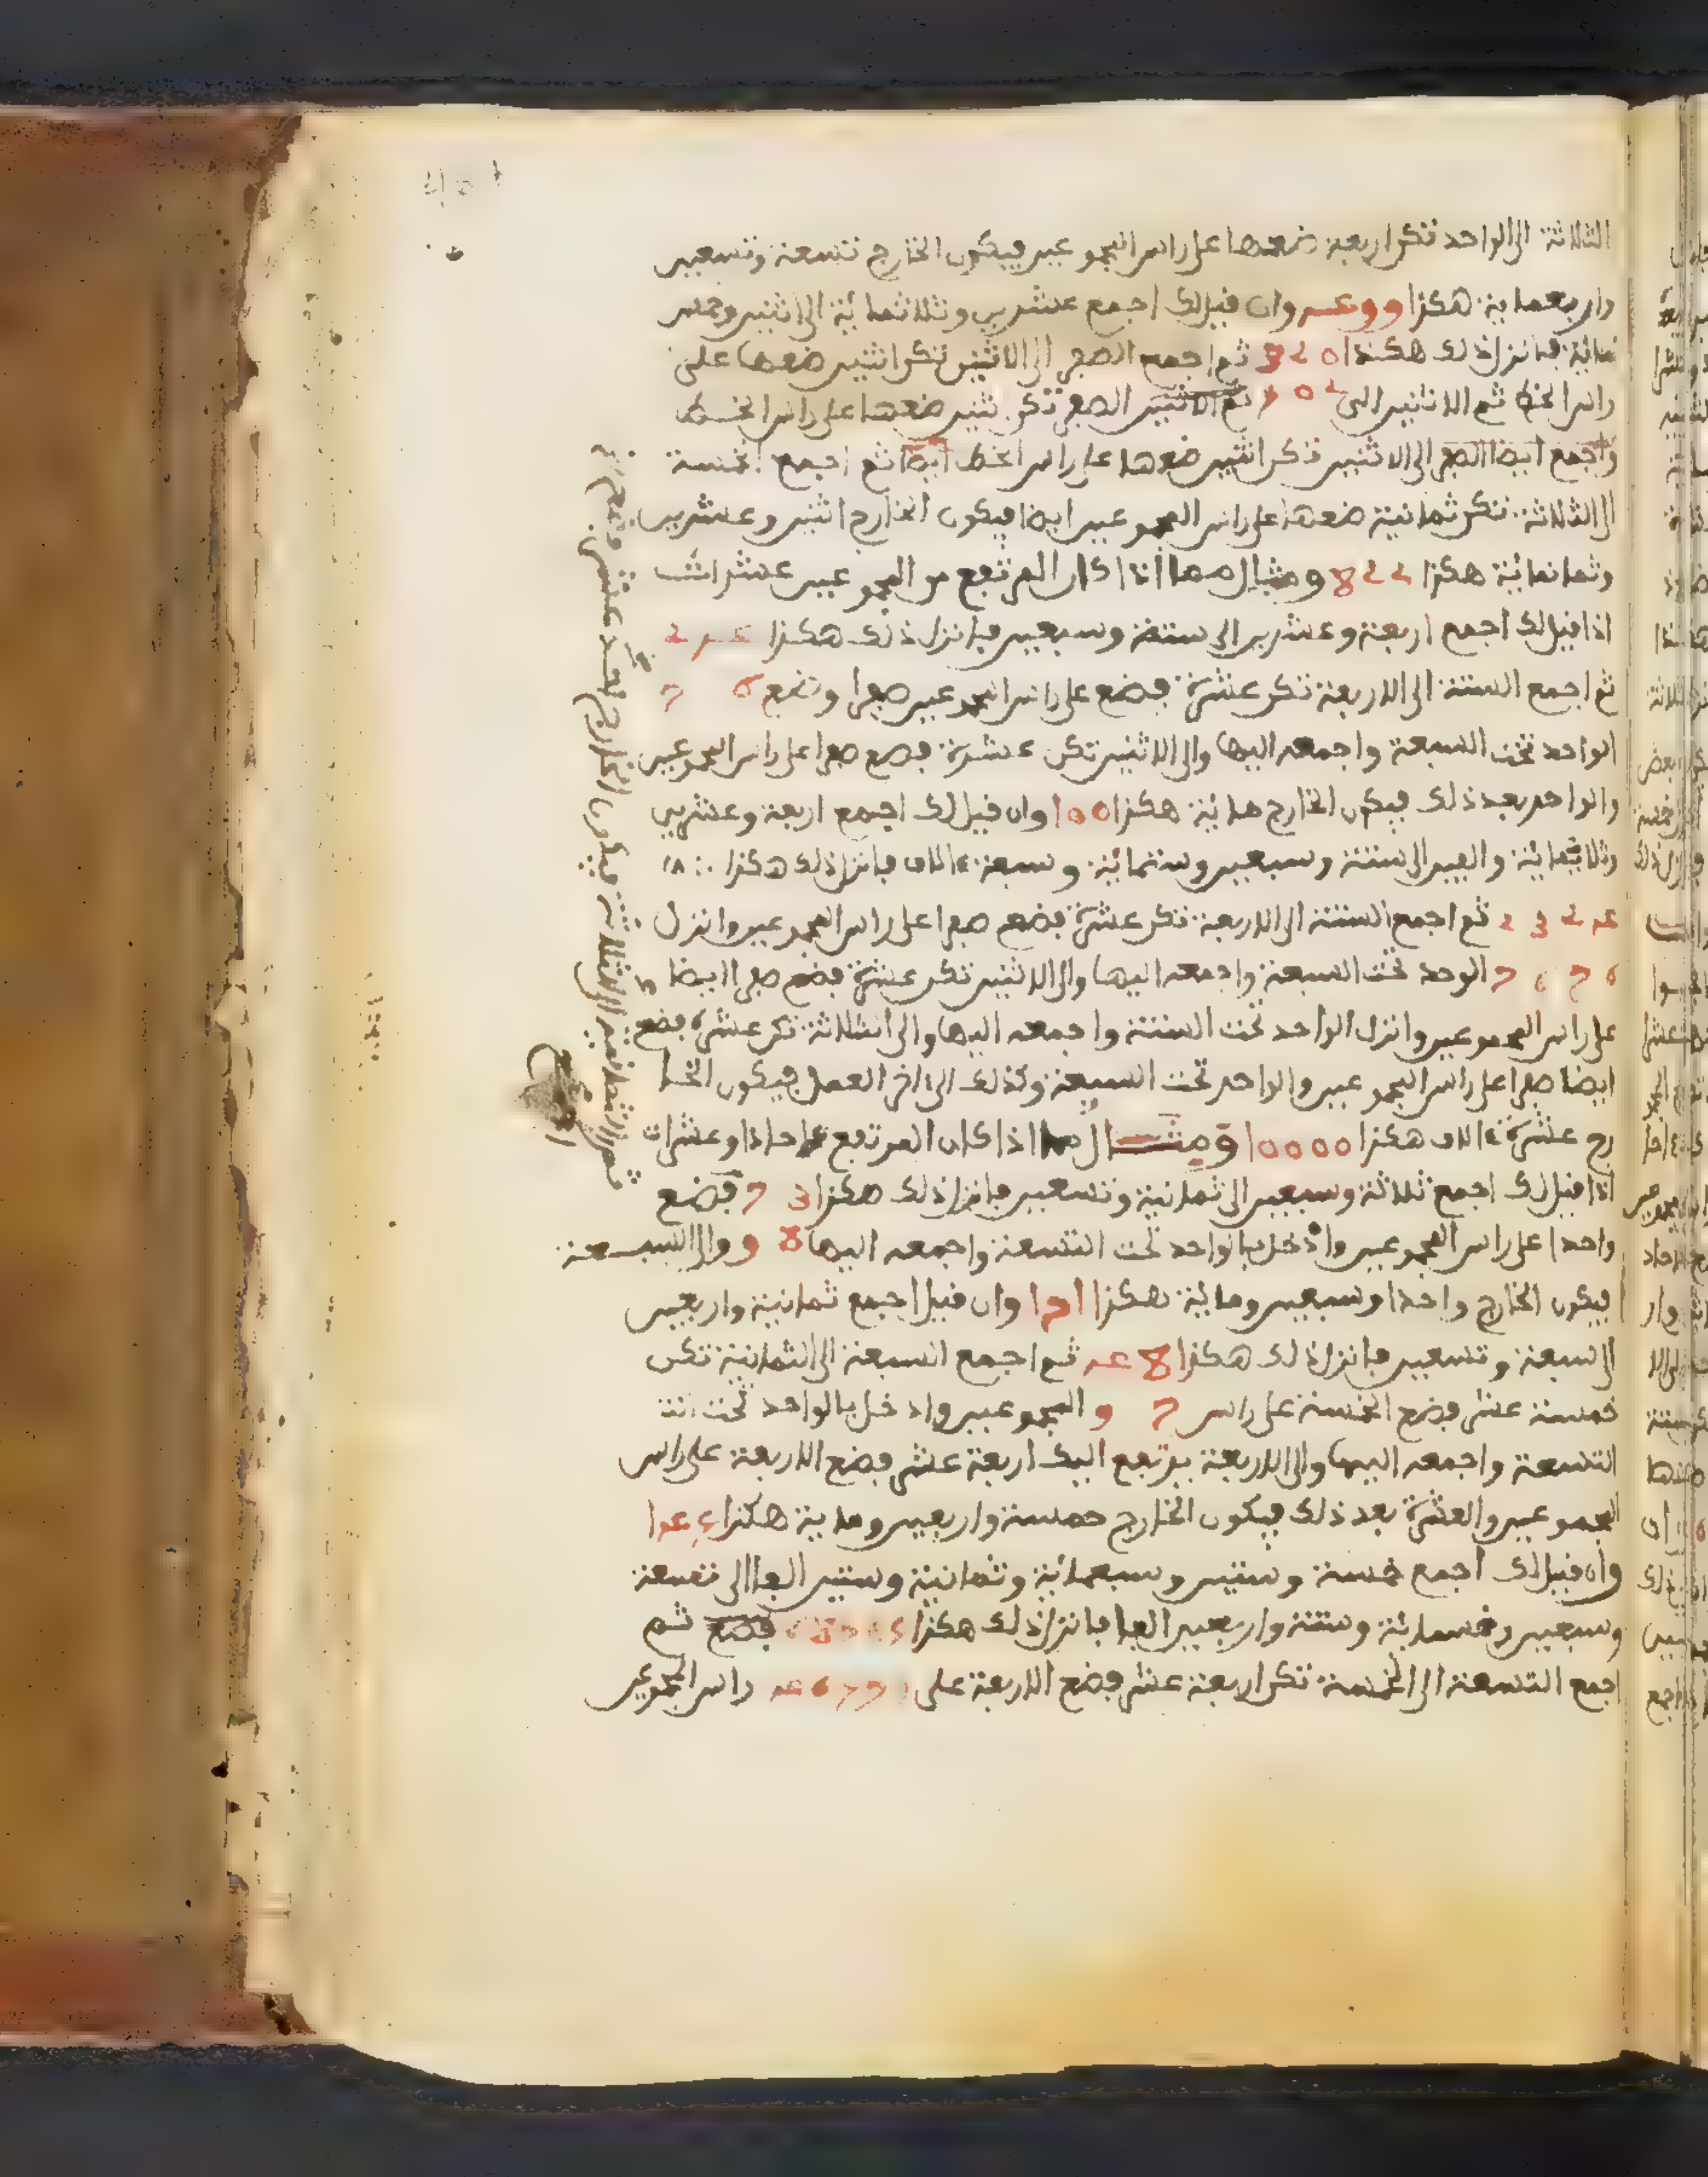 الثلاثة الى الواحد تكن اربعة ضعها على راس المجموعين فيكون الخارج تسعة وتسعين
واربعماية هكذا 499 وان قيل لك اجمع عشرين وثلاثمائة الى اثنين وخمس
مائة فانزل ذلك هكذا 320 ثم اجمع الصفر الى الاثنين تكن اثنين ضعها على
راس الخط ثم الاثنين الى 502 الصفر تكن اثنين ضعها على راس الخط
واجمع ايضا الصفر الى الاثنين تكن اثنين ضعها على راس الخط ايضا ثم اجمع الخمسة
الى الثلاثة تكن ثمانية ضعها على راس المجموعين ايضا فيكون الخارج اثنين وعشرين
وثمانمائة هكذا 822 ومثال مما اذا كان المرتفع من المجموعين عشرات
اذا قيل لك اجمع اربعة وعشرين الى ستة وسبعين فانزل ذلك هكذا 24
ثم اجمع الستة الى الاربعة تكن عشرة فضع على راس المجموعين صفرا وضع 76
الواحد تحت السبعة واجمعه اليها والى الاثنين تكن عشرة فضع صفرا على راس المجموعين
والواحد بعد ذلك فيكون الخارج مائة هكذا 100 وان قيل لك اجمع اربعة وعشرين
وثلاثمائة والفين الى ستة وسبعين وستمائة وسبعة ءالاف فانزل ذلك هكذا
2324 ثم اجمع الستة الى الاربعة تكن عشرة فضع صفرا على راس المجموعين وانزل
7676 الوحد تحت السبعة واجمعه اليها والى الاثنين تكن عشرة فضع صفرا ايضا
على راس المجموعين وانزل الواحد تحت الستة واجمعه اليها والى الثلاثة تكن عشرة فضع
ايضا صفرا على راس المجموعين والواحد تحت السبعة وكذلك الى ءاخر العمل فيكون الخا
رج عشرة ءالاف هكذا 10000 ومثال ما اذا كان المرتفع ءاحادا وعشرات
اذا قيل لك اجمع ثلاثة وسبعين الى ثمانية وتسعين فانزل ذلك هكذا 73 فضع
واحدا على راس المجموعين وادخل بالواحد تحت التسعة واجمعه اليها 98 والى السبعة
فيكون الخارج واحدا وسبعين ومائة هكذا 171 وان قيل اجمع ثمانية واربعين
الى سبعة وتسعين فانزل ذلك هكذا 48 ثم اجمع السبعة الى الثمانية تكن
خمسة عشر فضع الخمسة على راس 97 المجموعين وادخل بالواحد تحت
التسعة واجمعه اليها والى الاربعة يرتفع اليك اربعة عشر فضع الاربعة على راس
المجموعين والعشرة بعد ذلك فيكون الخارج خمسة واربعين وماية هكذا 145
وان قيل لك اجمع خمسة وستين وسبعمائة وثمانية وستين الفا الى تسعة
وسبعين وخمسمائة وستة واربعين الفا فانزل ذلك هكذا 68765 فضع ثم
اجمع التسعة الى الخمسة تكن اربعة عشر فضع الاربعة على 46579 راس المجموعين